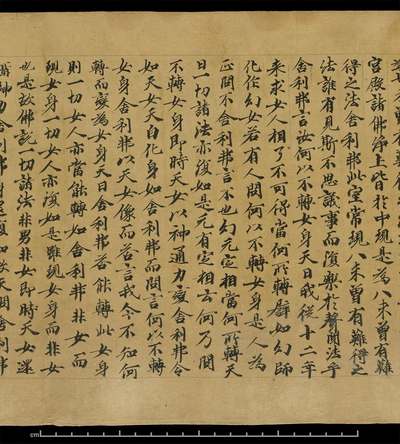 宮殿諸佛淨土皆於中現是為八未曾有難
得之法舍利弗此室常現八未曾有難得之
法誰有見斯不思議事而復樂於聲聞法乎
舍利弗言汝何以不轉女身天曰我從十二年
來求女人相了不可得當何所轉譬如幻師
化作幻女若有人問何以不轉女身是人為
正問不舍利弗言不也幻无定相當何所轉天
曰一切諸法亦復如是无有定相云何乃問
不轉女身即時天女以神通力變舍利弗令
如天女天自化身如舍利弗而問言何以不轉
女身舍利弗以天女像而答言我今不知何
轉而變為女身天曰舍利弗若能轉此女身
則一切女人亦當能轉如舍利弗非女而
現女身一切女人亦復如是雖現女身而非女
也是故佛說一切諸法非男非女即時天女還
cm